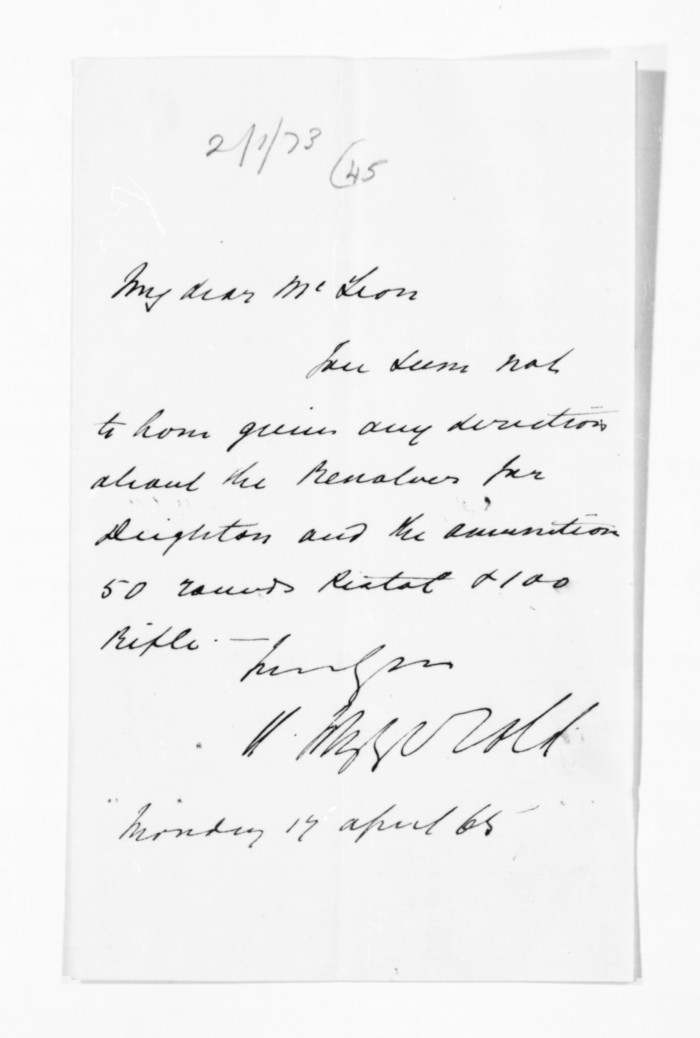 2/1/73 (45
My dear McLean
You seem not
to have given any directions
about the Revolver for
Deighton and the ammunition
50 rounds Pistol & 100
Rifle. —
Monday 17 April 65